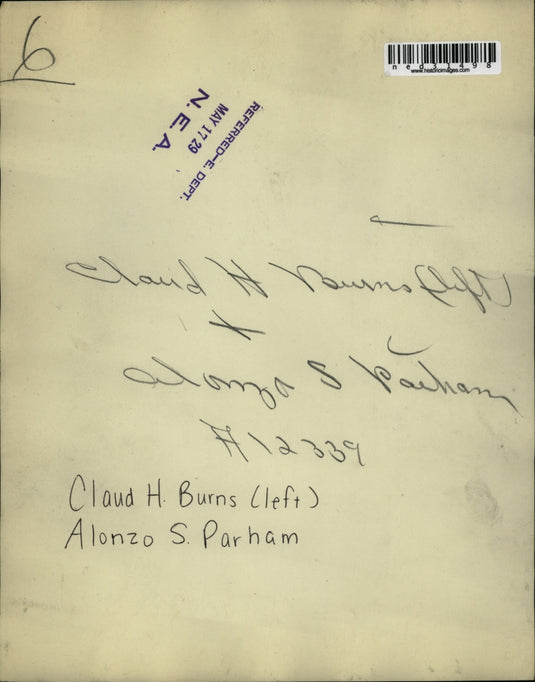 6
ned31498
www.historicimages.com
REFERRED-E. DEPT.
MAY 17 29
N. E. A.
Claud H Burns (left)
+
Alonzo S Parham
A12339
Claud H. Burns (left)
Alonzo S. Parham